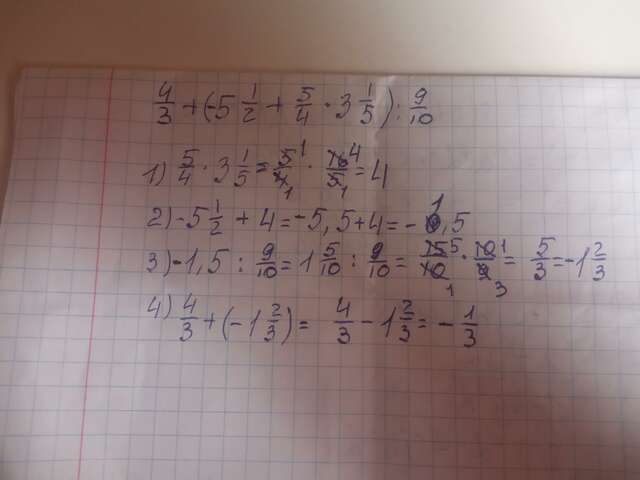 4/3 + (-5 1/2 + 5/4 · 3 1/5) : 9/10
1) 5/4 · 3 1/5 = 5 1/4 1 · 16 4/5 1 = 4
2) -5 1/2 + 4 = -5,5 + 4 = -1,5
3) -1,5 : 9/10 = 1 5/10 : 9/10 = 15 5/10 1 · 10 1/9 3 = 5/3 = -1 2/3
4) 4/3 + (-1 2/3) = 4/3 - 1 2/3 = - 1/3